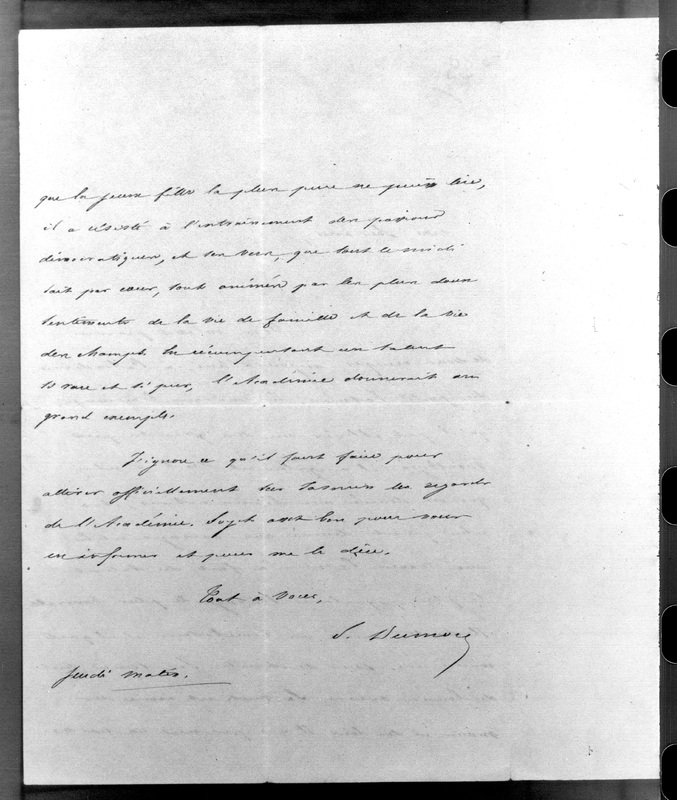 que la jeune fille la plus pure ne puisse lire,
il a résisté à l'entrainement des passions
démocratiques, et ses vers, que tout le midi
sait par cœur, sont animés par les plus doux
sentiments de la vie de famille et de la vie
des champs. En récompensant un talent
si rare et si pur, l'Académie donnerait un
grand exemple.
J'ignore ce qu'il faut faire pour
attirer officiellement sur Jasmin les regards
de l'Académie. Soyez assez bon pour vous
en informer et pour me le dire.
Tout à vous,
S. Dumon
Jeudi matin.